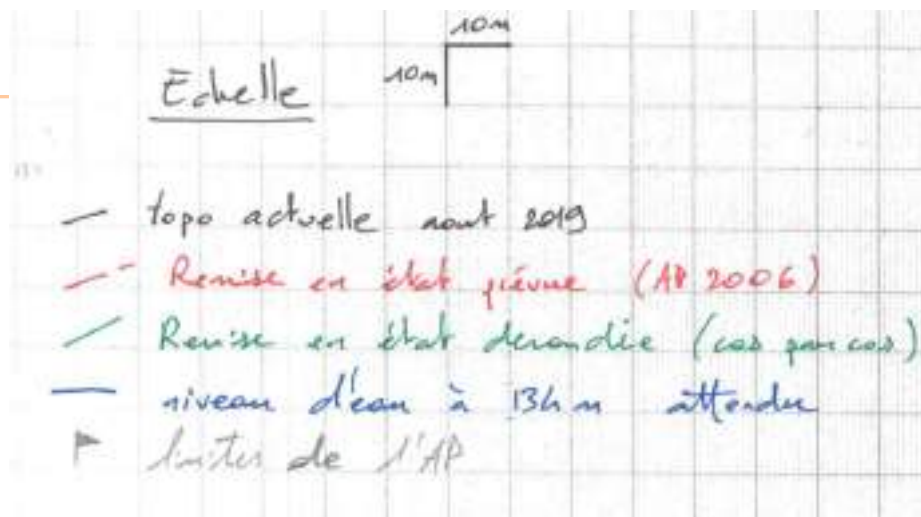 10m
Echelle 10m
topo actuelle aout 2019
Remise en état prévue (AP 2006)
Remise en état demandée (cas par cas)
niveau d'eau à 134 m attendu
limites de l'AP